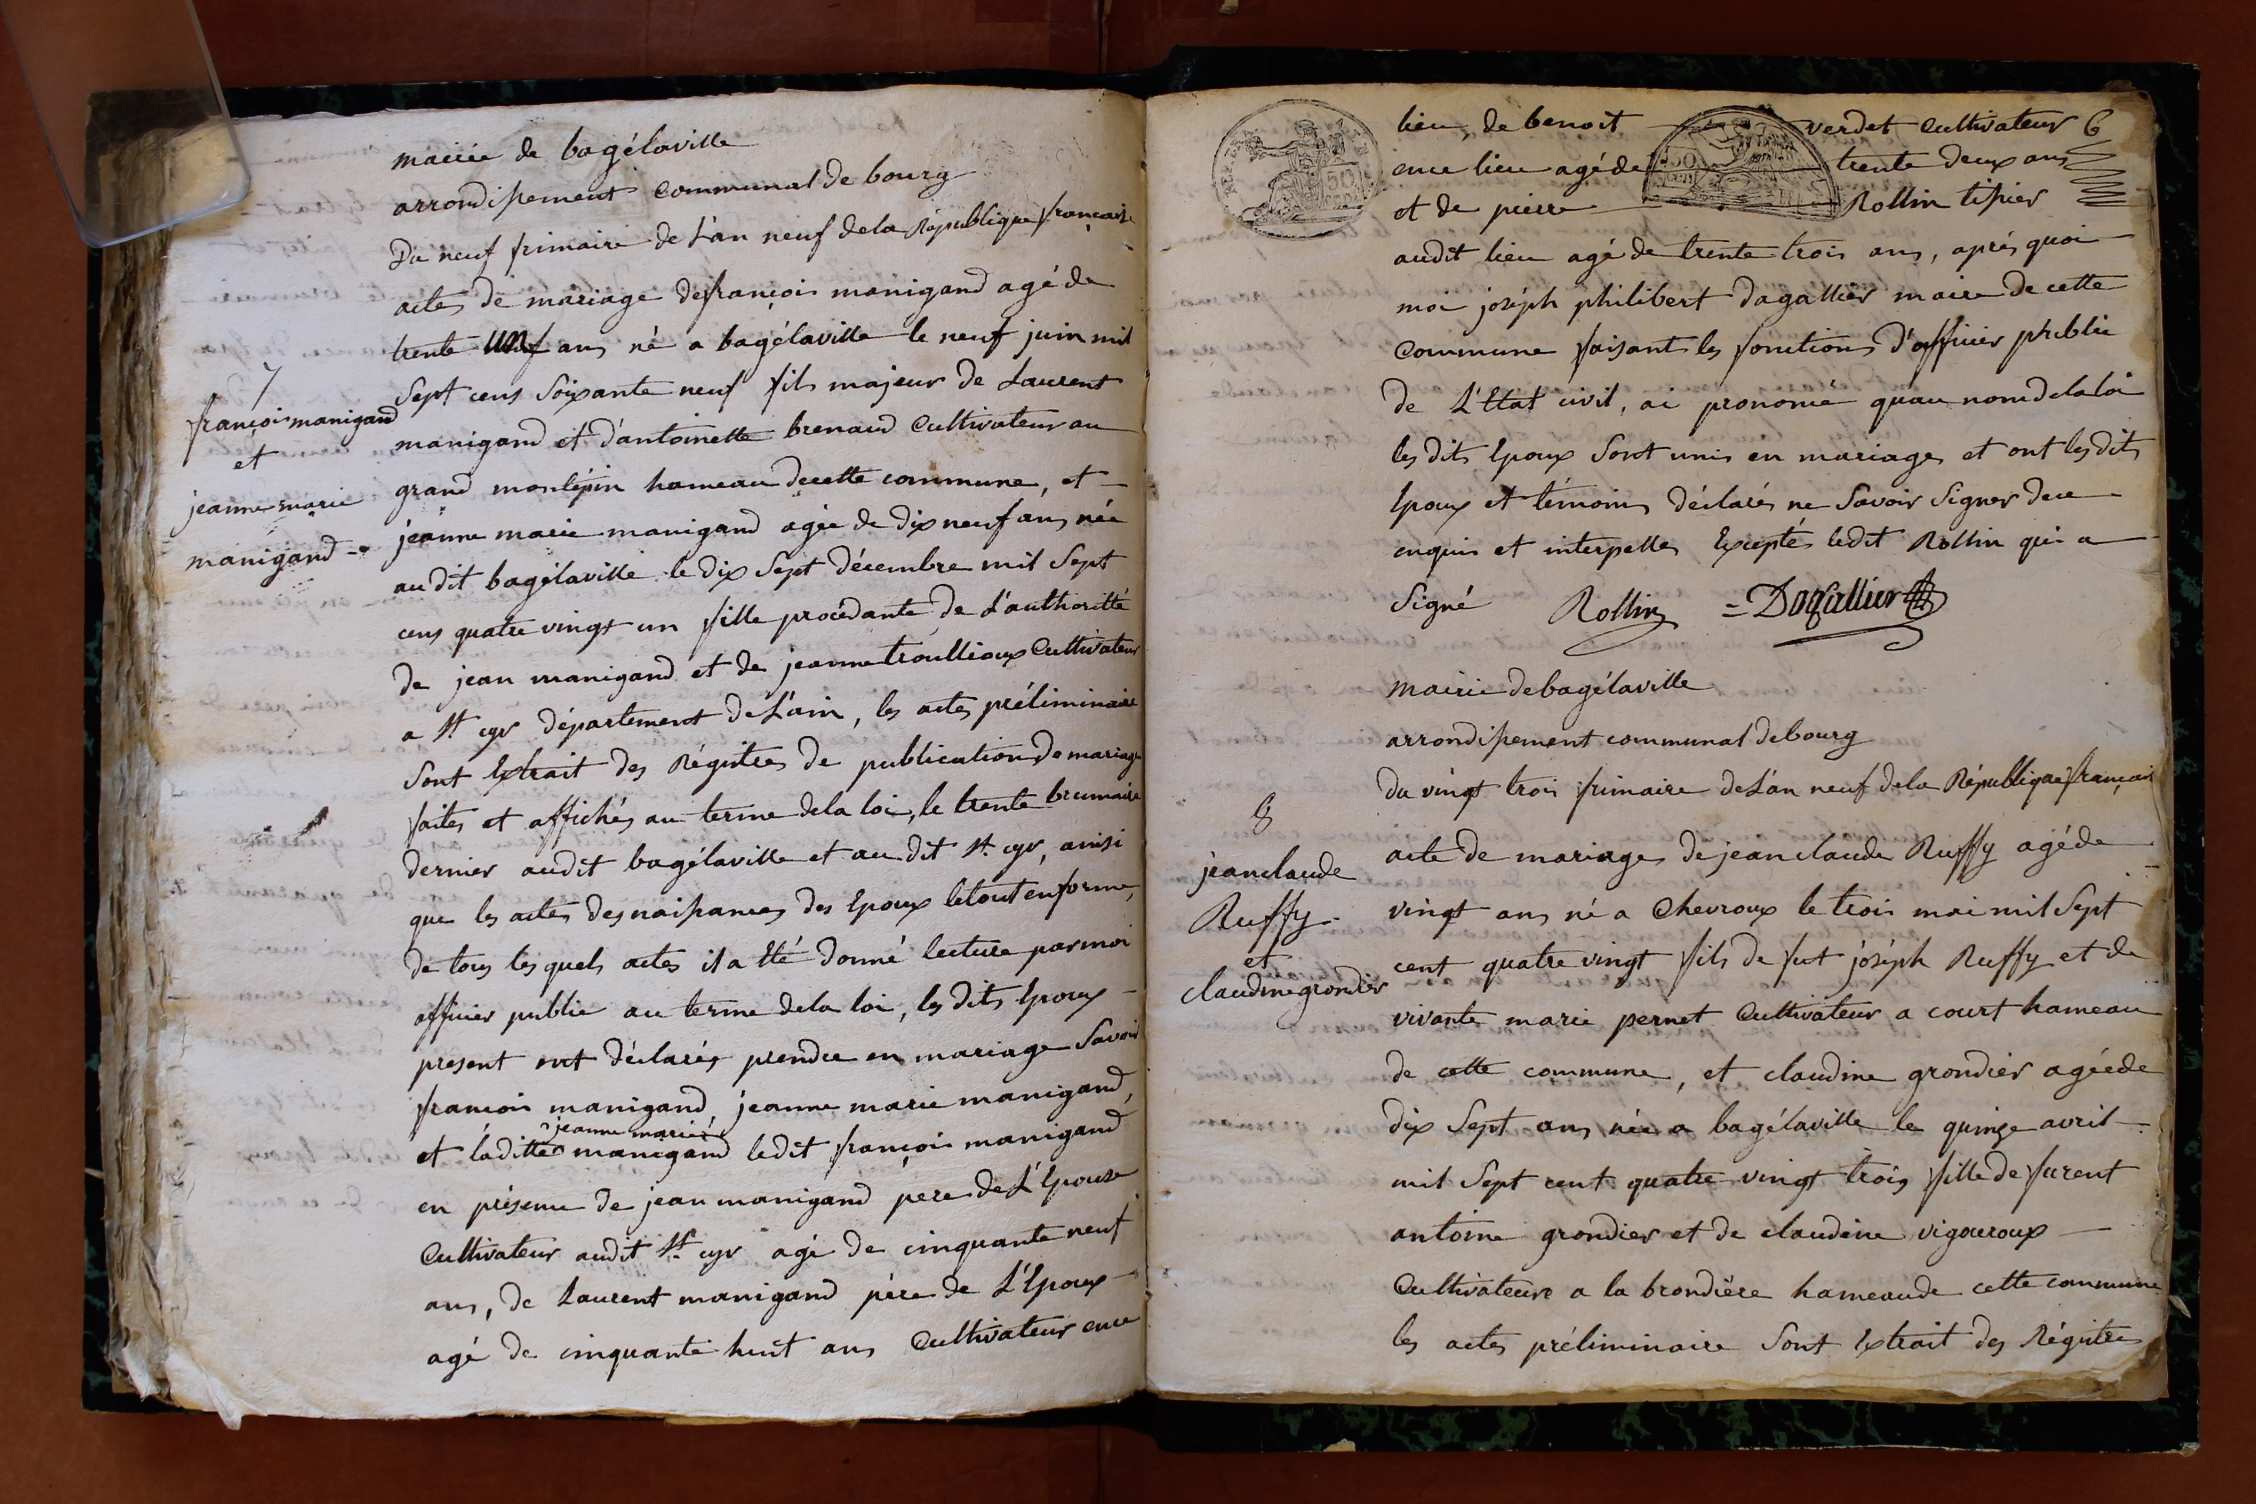 mairie de bagélaville
arrondissement communal de bourg
Du neuf frimaire de L'an neuf dela République française
actes de mariage defrançois manigand agé de
trente ans né a bagélaville le neuf juin mil
Sept cens Soixante neuf fils majeur de Laurent
manigand et d'antoinette brenaud Cultivateur au
grand monlepin hameau decette commune, et
jeanne marie manigand agée de dix neuf ans née
au dit bagélaville le dix Sept décembre mil Sept
cens quatre vingt un fille procédante de L'authoritté
de jean manigand et de jeanne troullioux Cultivateur
a St cyr département de L'ain, les actes préliminaire
Sont Extrait des Régistres de publication de mariage
faites et affichés au terme dela loi, le trente brumaire
dernier audit bagélaville et au dit St. cyr, ainsi
que les actes des naissances des Epoux letout en forme,
de tous les quels actes il a Eté donné lecture par moi
officier public au terme dela loi, les dits Epoux
present ont déclarés prendre en mariage Savoir
françois manigand, jeanne marie manigand,
jeanne marie
et laditte manigand ledit françois manigand
en présence de jean manigand père de L'Epouse
Cultivateur audit St cyr agé de cinquante neuf
ans, de Laurent manigand père de L'Epoux
agé de cinquante huit ans Cultivateur ence
7
françois manigand
et
jeanne marie
manigand
6
lieu, de benoit verdet Cultivateur
ence lieu agé de trente deux ans
et de pierre Rollin tissier
audit lieu agé de trente trois ans, aprés quoi
moi joséph philibert dagallier maire de cette
Commune faisant les fonctions d'officier public
de L'Etat civil, ai prononcé quau nom dela loi
les dits Epoux Sont unis en mariage et ont les dits
Epoux et témoins déclarés ne Savoir Signer dece
enquis et interpelles Exceptés ledit Rollin qui a
Signé Rollin = Dagallier
mairie de bagélaville
arrondissement communal de bourg
du vingt trois frimaire de L'an neuf dela République français
acte de mariage de jean claude Ruffy agé de
vingt ans né a Chevroux le trois mai mil Sept
cent quatre vingt fils de fut joséph Ruffy et de
vivante marie pernet Cultivateur a court hameau
de cette commune, et claudine grondier agée de
dix Sept ans née a bagélaville le quinze avril
mil Sept cent quatre vingt trois fille de furent
antoine grondier et de claudine vigouroux
Cultivateurs a la brondière hameau de cette commune
les actes préliminaire Sont Extrait des Régistre
8
jean claude
Ruffy
et
claudine grondier